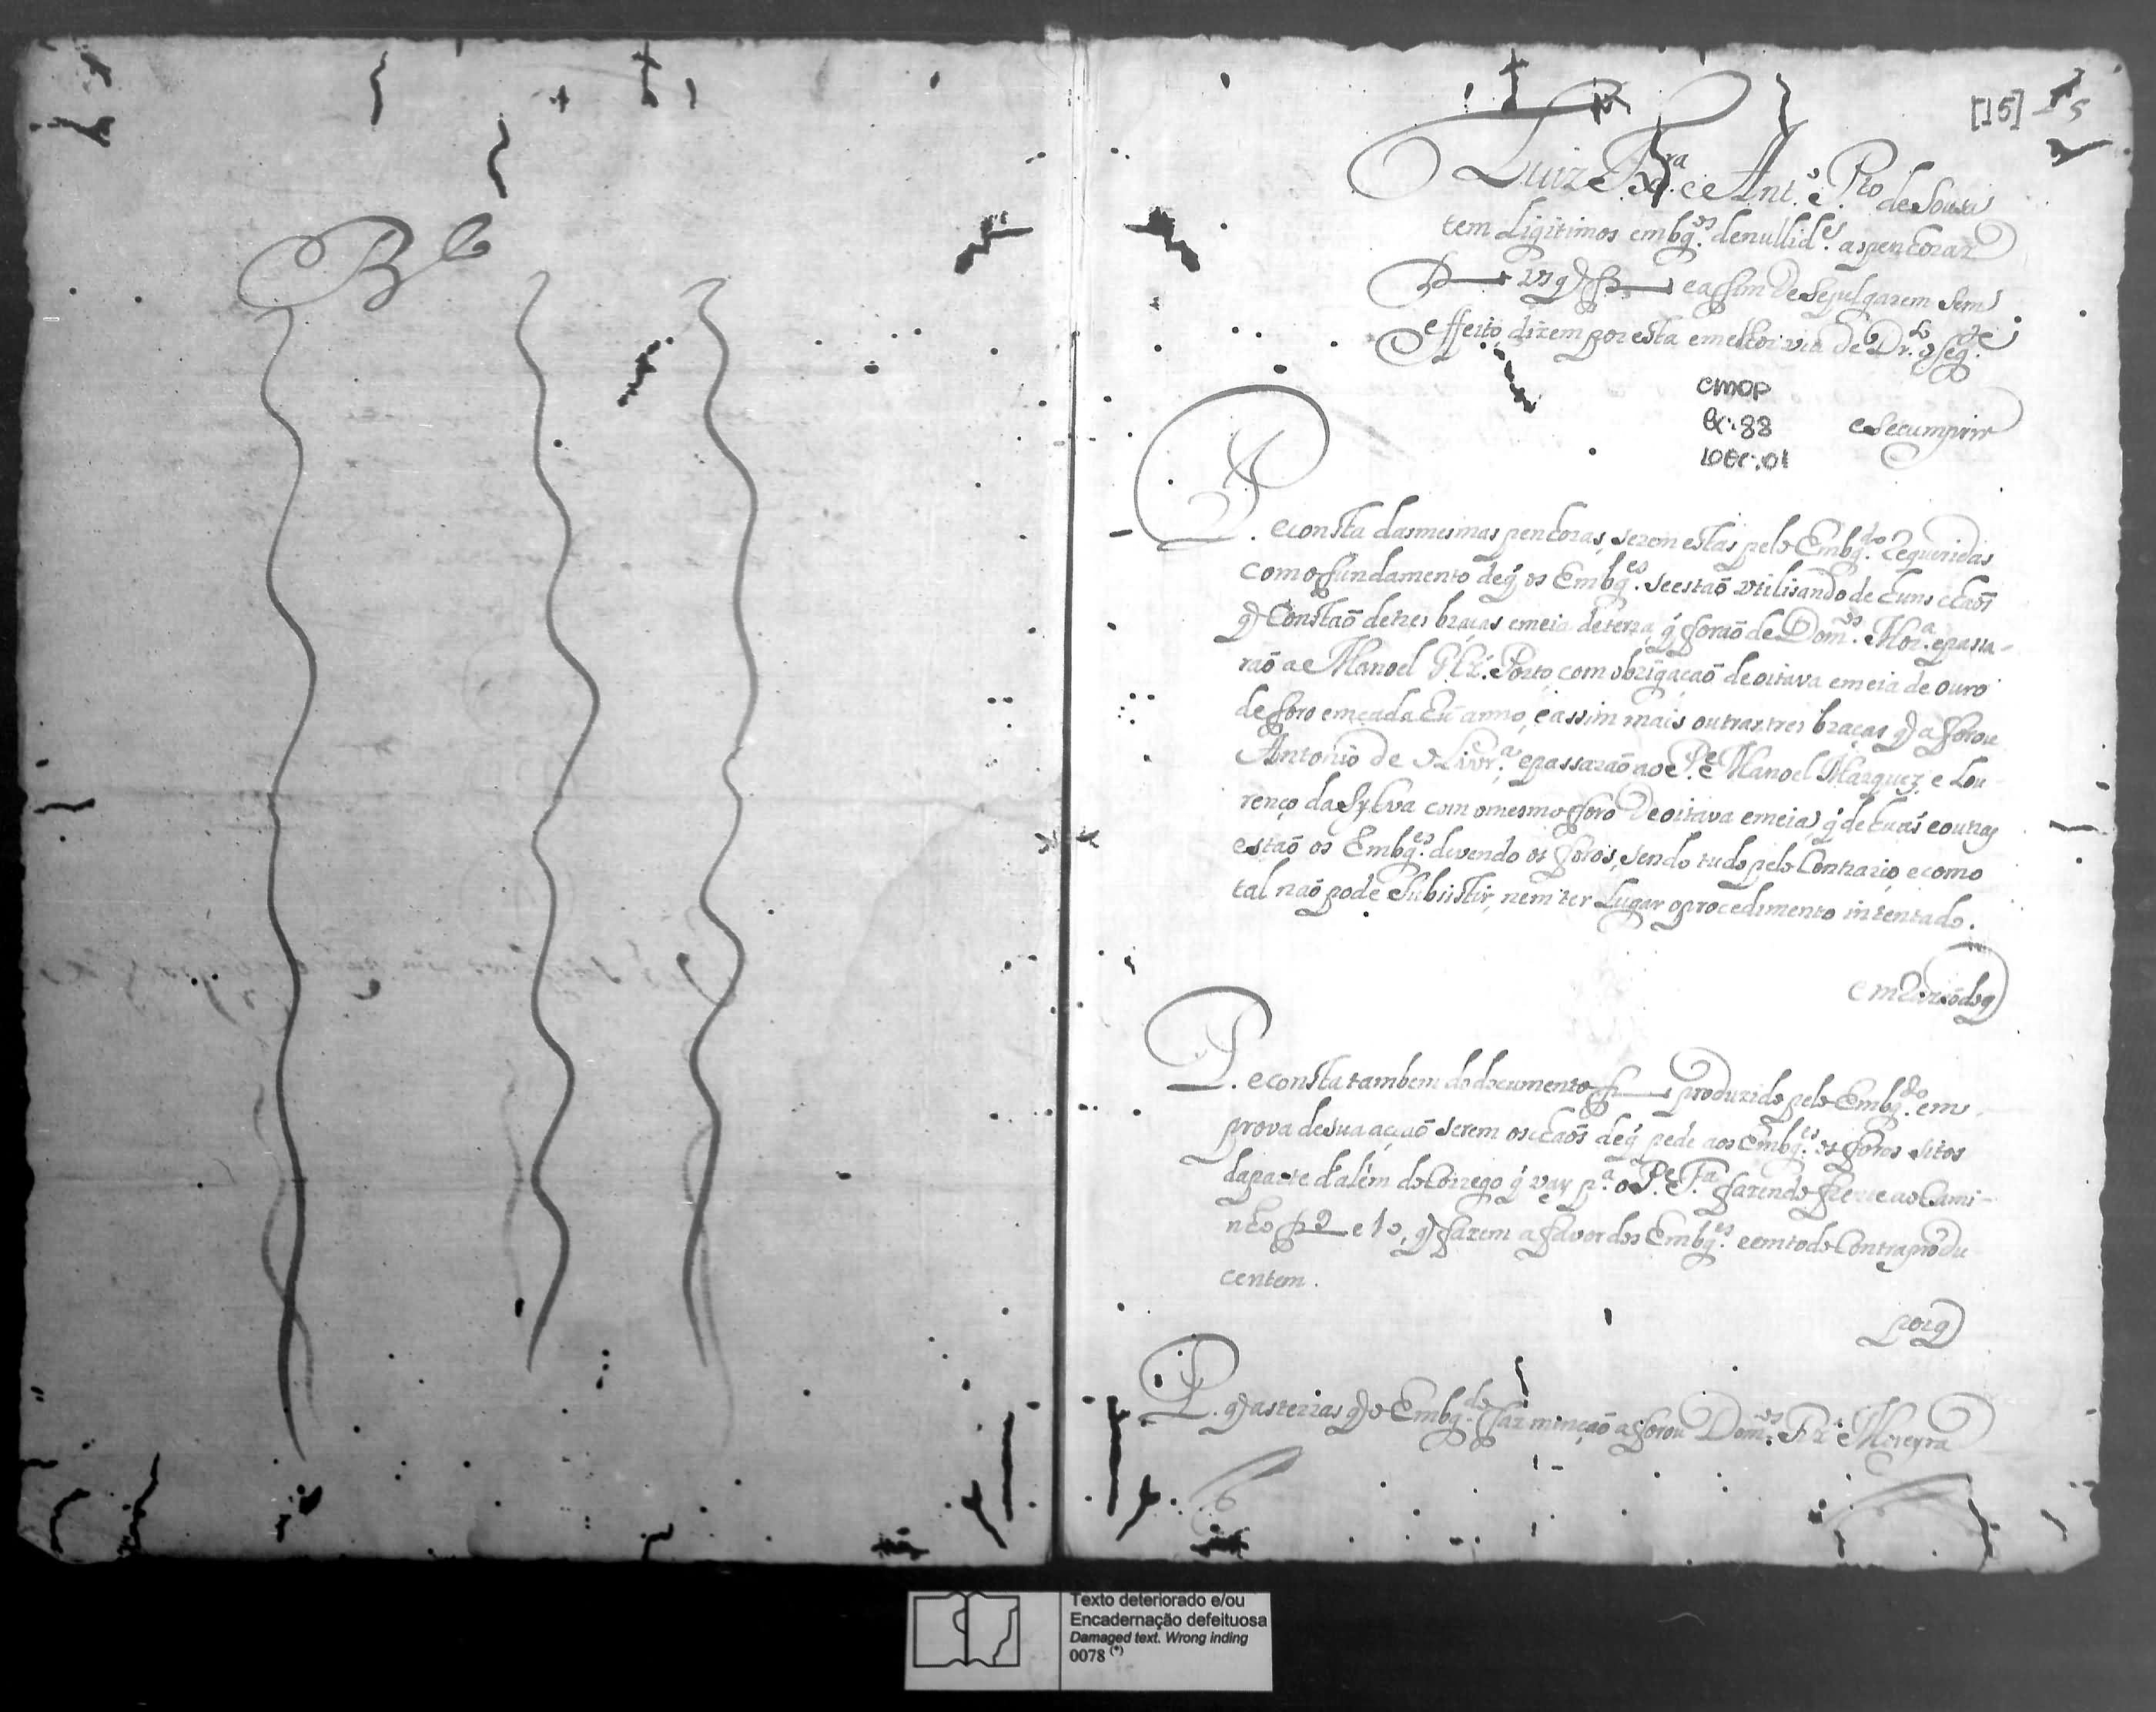 Bco
[15] 15
Luiz Frra e Anto Pto de Souza
tem Ligitimos embges. de nullide. as penhoras
f us q f e a fim de se julgarem sem
effeito, dizem por esta e melhor via de Dro. o segte
CMOP
Cx: 88
DOC: 01
e se cumprir
P. e consta das mesmas penhoras, serem estas pelo Embgdo. Requeridas
com o fundamento de q̃ os Embges. se estaõ utilisando de huns chaõs
q Constaõ de tres braças e meia de terra, q̃ foraõ de Domos. Mora. e passa-
raõ a Manoel Glz̃. Porto, com obrigaçaõ de oitava e meia de ouro
de foro em cada hũ anno, e assim mais outras tres braças q aforou
Antonio de Olivra. e passaraõ ao Pe. Manoel Marquez e Lou-
renço da Sylva com o mesmo foro de oitava e meia, q̃ de huãs e outras
estaõ os Embges. devendo os foros, sendo tudo pelo Contrario, e como
tal naõ pode Subsistir, nem ter Lugar o procedimento intentado.
em Razaõ de q
P. e consta tambem do documento f produzido pelo Embgdo. em
prova de sua acçaõ serem os chaõs de q̃ pede aos Embges. os foros sitos
da parte d'alem do Corrego q̃ vay pa. o Pe. Fa. fazendo frente ao Cami-
nho f 9 e 10, q fazem a favor dos Embges. e em todo Contraprodu
centem.
porq
P. q as terras q o Embgdo. faz mençaõ aforou Domos. Frz̃ Moreyra
Texto deteriorado e/ou
Encadernação defeituosa
Damaged text. Wrong inding
0078 (*)